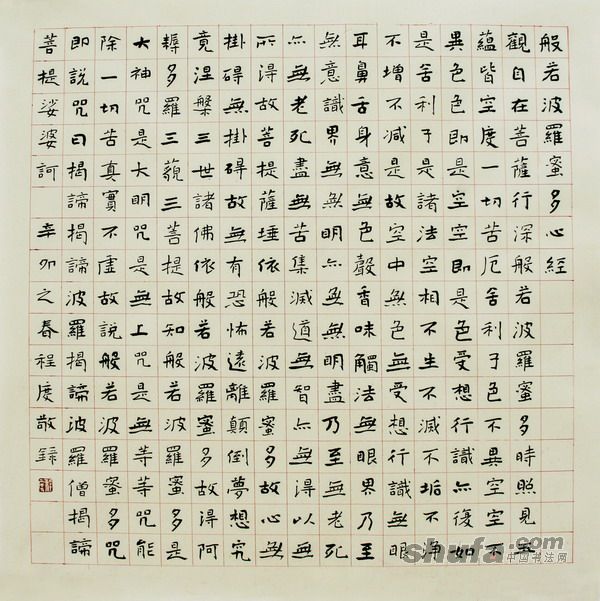 般若波羅蜜多心經
觀自在菩薩行深般若波羅蜜多時照見五
蘊皆空度一切苦厄舍利子色不異空空不
異色色即是空空即是色受想行識亦復如
是舍利子是諸法空相不生不滅不垢不淨
不增不減是故空中無色無受想行識無眼
耳鼻舌身意無色聲香味觸法無眼界乃至
無意識界無無明亦無無明盡乃至無老死
亦無老死盡無苦集滅道無智亦無得以無
所得故菩提薩埵依般若波羅蜜多故心無
掛礙無掛礙故無有恐怖遠離顛倒夢想究
竟涅槃三世諸佛依般若波羅蜜多故得阿
耨多羅三藐三菩提故知般若波羅蜜多是
大神咒是大明咒是無上咒是無等等咒能
除一切苦真實不虛故說般若波羅蜜多咒
即說咒曰揭諦揭諦波羅揭諦波羅僧揭諦
菩提娑婆訶 辛卯之春程度敬錄
shufa.com
中国书法网